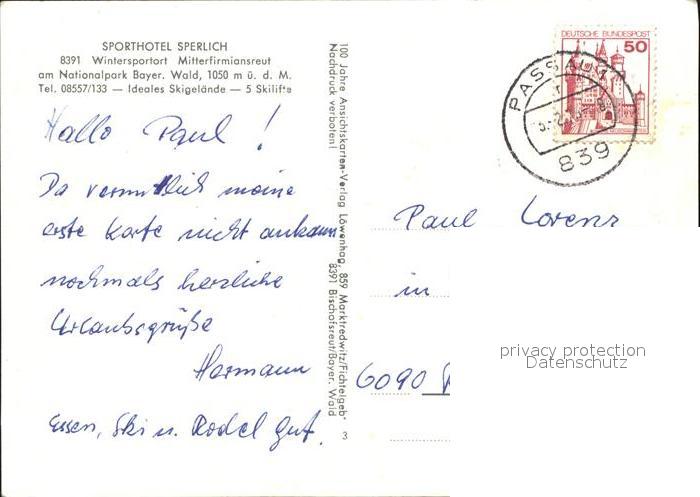 SPORTHOTEL SPERLICH
8391 Wintersportort Mitterfirmiansreut
am Nationalpark Bayer. Wald, 1050 m ü. d. M.
Tel. 08557/133 — Ideales Skigelände — 5 Skilifte
Hallo Paul !
Da vermutlich meine
erste Karte nicht ankam
nochmals herzliche
Urlaubsgrüße
Hermann
Essen, Ski u. Rodel gut.
100 Jahre Ansichtskarten-Verlag Löwenhag, 859 Marktredwitz/Fichtelgeb.
Nachdruck verboten!
8391 Bischofsreut/Bayer. Wald
3
DEUTSCHE BUNDESPOST
50
PASSAU
839
Paul Lorenz
in
6090
privacy protection
Datenschutz